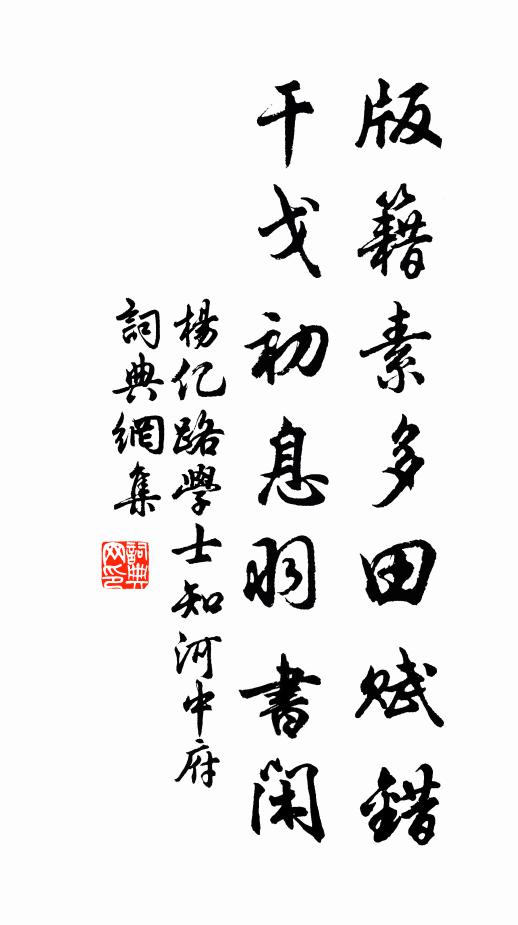 版籍素多田赋錯
干戈初息羽書閑
楊亿路學士知河中府
詞典網集
詞典网印